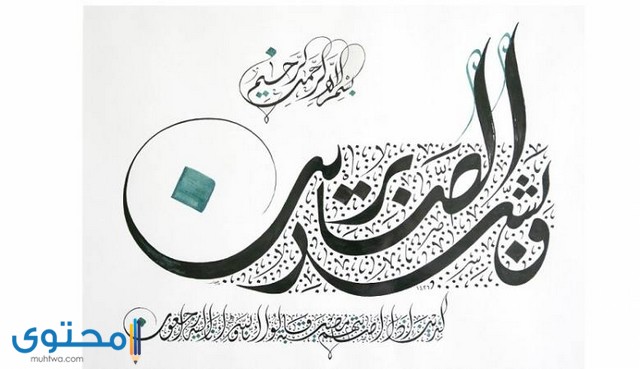 بسم الله الرحمن الرحيم
وبشر الصابرين
١٤٢٦
الذين إذا أصابتهم مصيبة قالوا إنا لله وإنا إليه راجعون
محتوى
muhtwa.com